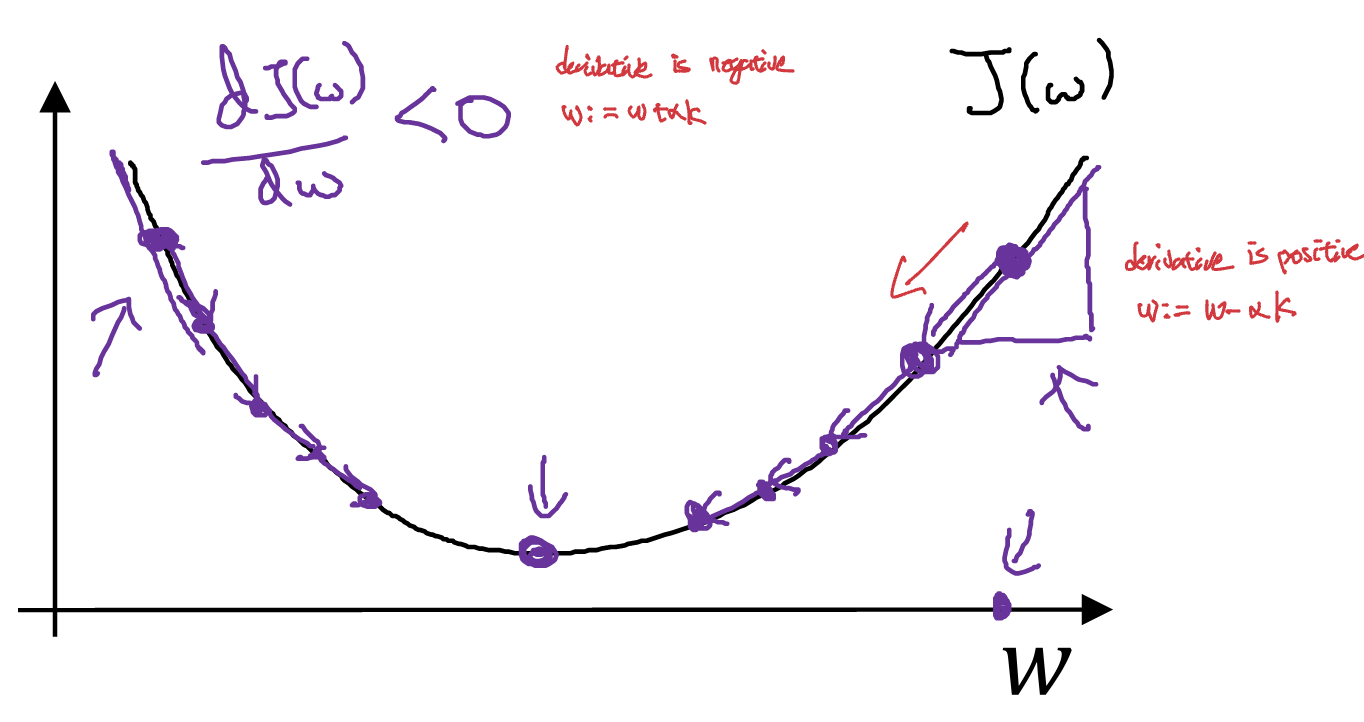 dJ(ω)/dω < 0
derivative is negative
w := w + αk
J(ω)
derivative is positive
w := w - αk
w